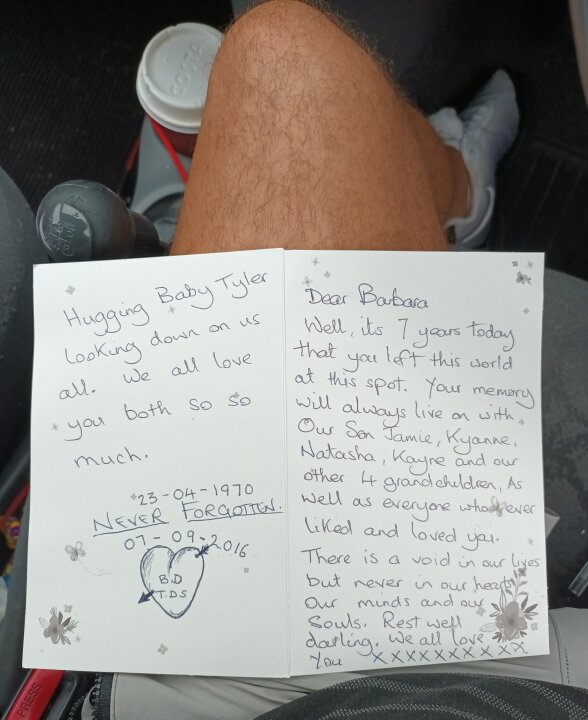 COSTA
Hugging Baby Tyler
looking down on us
all. We all love
you both so so
much.
23-04-1970
NEVER FORGOTTEN.
07-09-2016
B.D
T.D.S
Dear Barbara
Well, its 7 years today
that you left this world
at this spot. Your memory
will always live on with
Our Son Jamie, Kyanne,
Natasha, Kayne and our
other 4 grandchildren, As
well as everyone who ever
liked and loved you.
There is a void in our lives
but never in our hearts
Our minds and our
Souls. Rest well
darling, we all love
You xxxxxxxxxx
PRESS